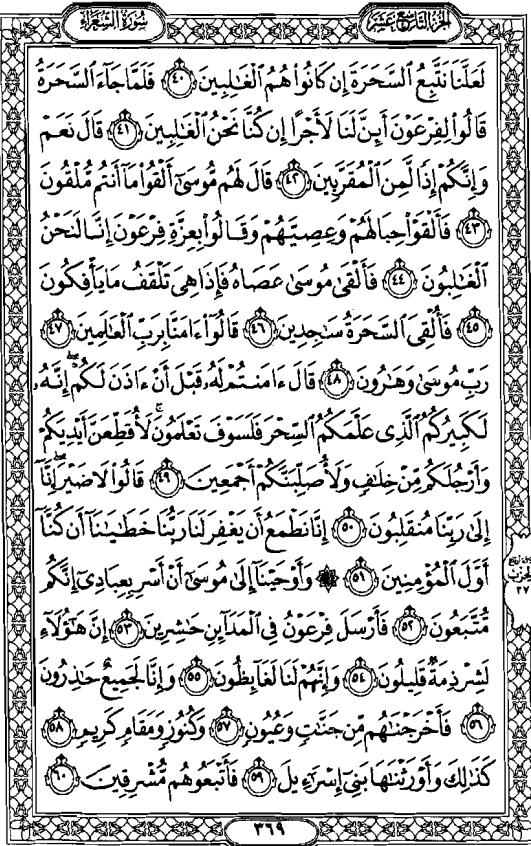 سُورَةُ الشُّعَرَاءِ
الجُزْءُ التَّاسِعَ عَشَرَ
لَعَلَّنَا نَتَّبِعُ ٱلسَّحَرَةَ إِن كَانُوا۟ هُمُ ٱلْغَٰلِبِينَ ٤٠ فَلَمَّا جَآءَ ٱلسَّحَرَةُ
قَالُوا۟ لِفِرْعَوْنَ أَئِنَّ لَنَا لَأَجْرًا إِن كُنَّا نَحْنُ ٱلْغَٰلِبِينَ ٤١ قَالَ نَعَمْ
وَإِنَّكُمْ إِذًا لَّمِنَ ٱلْمُقَرَّبِينَ ٤٢ قَالَ لَهُم مُّوسَىٰٓ أَلْقُوا۟ مَآ أَنتُم مُّلْقُونَ
٤٣ فَأَلْقَوْا۟ حِبَالَهُمْ وَعِصِيَّهُمْ وَقَالُوا۟ بِعِزَّةِ فِرْعَوْنَ إِنَّا لَنَحْنُ
ٱلْغَٰلِبُونَ ٤٤ فَأَلْقَىٰ مُوسَىٰ عَصَاهُ فَإِذَا هِىَ تَلْقَفُ مَا يَأْفِكُونَ
٤٥ فَأُلْقِىَ ٱلسَّحَرَةُ سَٰجِدِينَ ٤٦ قَالُوٓا۟ ءَامَنَّا بِرَبِّ ٱلْعَٰلَمِينَ ٤٧
رَبِّ مُوسَىٰ وَهَٰرُونَ ٤٨ قَالَ ءَامَنتُمْ لَهُۥ قَبْلَ أَنْ ءَاذَنَ لَكُمْ ۖ إِنَّهُۥ
لَكَبِيرُكُمُ ٱلَّذِى عَلَّمَكُمُ ٱلسِّحْرَ فَلَسَوْفَ تَعْلَمُونَ ۚ لَأُقَطِّعَنَّ أَيْدِيَكُمْ
وَأَرْجُلَكُم مِّنْ خِلَٰفٍ وَلَأُصَلِّبَنَّكُمْ أَجْمَعِينَ ٤٩ قَالُوا۟ لَا ضَيْرَ ۖ إِنَّآ
إِلَىٰ رَبِّنَا مُنقَلِبُونَ ٥٠ إِنَّا نَطْمَعُ أَن يَغْفِرَ لَنَا رَبُّنَا خَطَٰيَٰنَآ أَن كُنَّآ
أَوَّلَ ٱلْمُؤْمِنِينَ ٥١ ۞ وَأَوْحَيْنَآ إِلَىٰ مُوسَىٰٓ أَنْ أَسْرِ بِعِبَادِىٓ إِنَّكُم
مُّتَّبَعُونَ ٥٢ فَأَرْسَلَ فِرْعَوْنُ فِى ٱلْمَدَآئِنِ حَٰشِرِينَ ٥٣ إِنَّ هَٰٓؤُلَآءِ
لَشِرْذِمَةٌ قَلِيلُونَ ٥٤ وَإِنَّهُمْ لَنَا لَغَآئِظُونَ ٥٥ وَإِنَّا لَجَمِيعٌ حَٰذِرُونَ
٥٦ فَأَخْرَجْنَٰهُم مِّن جَنَّٰتٍ وَعُيُونٍ ٥٧ وَكُنُوزٍ وَمَقَامٍ كَرِيمٍ ٥٨
كَذَٰلِكَ وَأَوْرَثْنَٰهَا بَنِىٓ إِسْرَٰٓءِيلَ ٥٩ فَأَتْبَعُوهُم مُّشْرِقِينَ ٦٠
الحزب
٣٧
٣٦٩